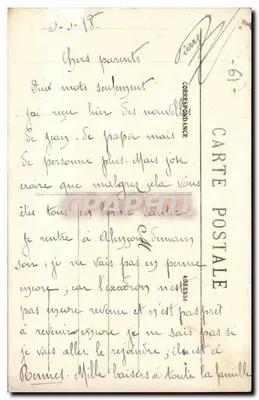 2-2-18
Chers parents
Deux mots seulement
j'ai reçu hier des nouvelles
de Jean. de papa mais
de personne plus. Mais jose
croire que malgrer cela vous
êtes tous en bonne santé
je rentre à Alençon demain
soir, je ne vais pas en perme
encore, car l'escadron n'est
pas encore revenu et n'est pas prêt
à revenir encore je ne sais pas si
je vais aller le rejoindre, il est à
Rennes. Mille baisers à toute la famille
CARTE POSTALE
CORRESPONDANCE
ADRESSE